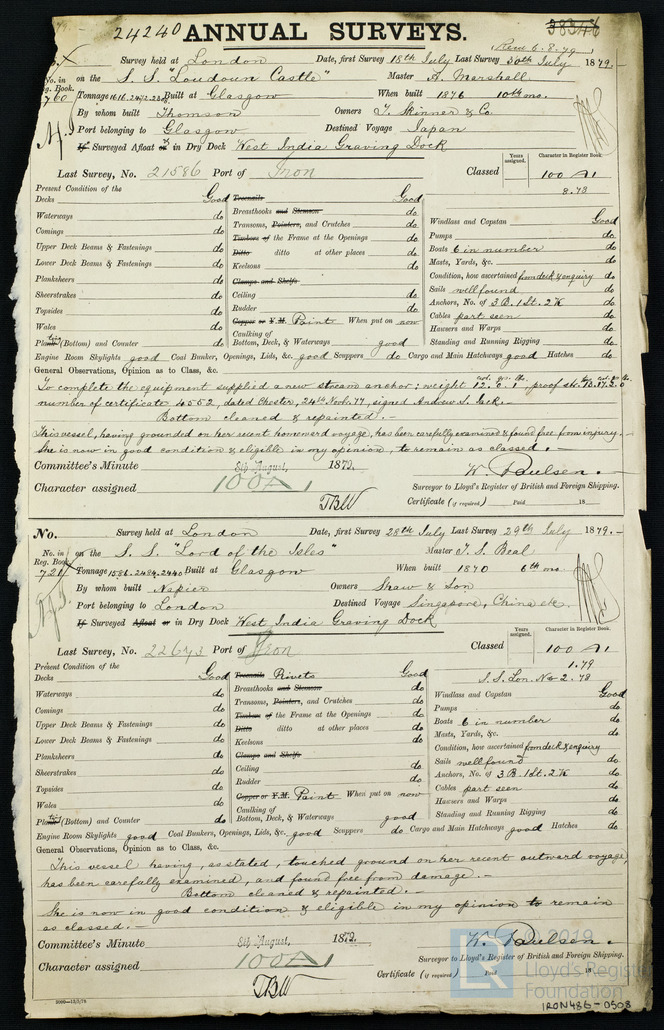 24240 ANNUAL SURVEYS.
(Recd 6.8.79)
Survey held at London Date, first Survey 18th July Last Survey 30th July 1879.-
No. in on the S.S. "Loudoun Castle" Master A. Marshall
Reg. Book.
760 Tonnage Built at Glasgow When built 1876 10th mo.
By whom built Thomson Owners T. Skinner & Co.
Port belonging to Glasgow Destined Voyage Japan
If Surveyed Afloat or in Dry Dock West India Graving Dock
Last Survey, No. 21586 Port of Iron Classed
Years assigned. Character in Register Book.
100 A1
8.78
Present Condition of the
Decks Good
Waterways do
Comings do
Upper Deck Beams & Fastenings do
Lower Deck Beams & Fastenings do
Planksheers do
Sheerstrakes do
Topsides do
Wales do
Plates (Bottom) and Counter do
Treenails Good
Breasthooks and Stemson do
Transoms, Pointers, and Crutches do
Timbers of the Frame at the Openings do
Ditto ditto at other places do
Keelsons do
Clamps and Shelfs
Ceiling do
Rudder do
Copper or Y.M. Paint When put on now
Caulking of
Bottom, Deck, & Waterways good
Windlass and Capstan Good
Pumps do
Boats 6 in number do
Masts, Yards, &c. do
Condition, how ascertained from deck & enquiry
Sails well found do
Anchors, No. of 3 B. 1 St. 2 K do
Cables part seen do
Hawsers and Warps do
Standing and Running Rigging do
Engine Room Skylights good Coal Bunker, Openings, Lids, &c. good Scuppers do Cargo and Main Hatchways good Hatches do
General Observations, Opinion as to Class, &c.
To complete the equipment supplied a new stream anchor; weight 12.0.1, proof
number of certificate 4552, dated Chester, 24th Novr. 77, signed Andrew S. Jack.-
Bottom cleaned & repainted.-
This vessel, having grounded on her recent homeward voyage, has been carefully examined & found free from injury.-
She is now in good condition & eligible in my opinion, to remain as classed.-
Committee's Minute 8th August, 1879.
Character assigned 100A1
TBW
W. Paulsen.-
Surveyor to Lloyd's Register of British and Foreign Shipping.
Certificate (if required) Paid 18
No. Survey held at London Date, first Survey 28th July Last Survey 29th July 1879.-
No. in on the S.S. "Lord of the Isles" Master T. S. Beal
Reg. Book
721 Tonnage 1586.2484.2440 Built at Glasgow When built 1870 6th mo.
By whom built Napier Owners Shaw & Son
Port belonging to London Destined Voyage Singapore, China &c.
If Surveyed Afloat or in Dry Dock West India Graving Dock
Last Survey, No. 22643 Port of Iron Classed
Years assigned. Character in Register Book.
100 A1
1.79
S.S. Lon. No 2.78
Present Condition of the
Decks Good
Waterways do
Comings do
Upper Deck Beams & Fastenings do
Lower Deck Beams & Fastenings do
Planksheers do
Sheerstrakes do
Topsides do
Wales do
Plates (Bottom) and Counter do
Treenails Rivets Good
Breasthooks and Stemson do
Transoms, Pointers, and Crutches do
Timbers of the Frame at the Openings do
Ditto ditto at other places do
Keelsons do
Clamps and Shelfs
Ceiling do
Rudder do
Copper or Y.M. Paint When put on now
Caulking of
Bottom, Deck, & Waterways good
Windlass and Capstan Good
Pumps do
Boats 6 in number do
Masts, Yards, &c. do
Condition, how ascertained from deck & enquiry
Sails well found do
Anchors, No. of 3 B. 1 St. 2 K do
Cables part seen do
Hawsers and Warps do
Standing and Running Rigging do
Engine Room Skylights good Coal Bunkers, Openings, Lids, &c. good Scuppers do Cargo and Main Hatchways good Hatches do
General Observations, Opinion as to Class, &c.
This vessel having, as stated, touched ground on her recent outward voyage,
has been carefully examined, and found free from damage.-
Bottom cleaned & repainted.-
She is now in good condition & eligible in my opinion to remain
as classed.-
Committee's Minute 8th August, 1879.
Character assigned 100A1
TBW
W. Paulsen.
Surveyor to Lloyd's Register of British and Foreign Shipping.
Certificate (if required) Paid 18
© 2019
Lloyds Register
Foundation
IRON486-0508